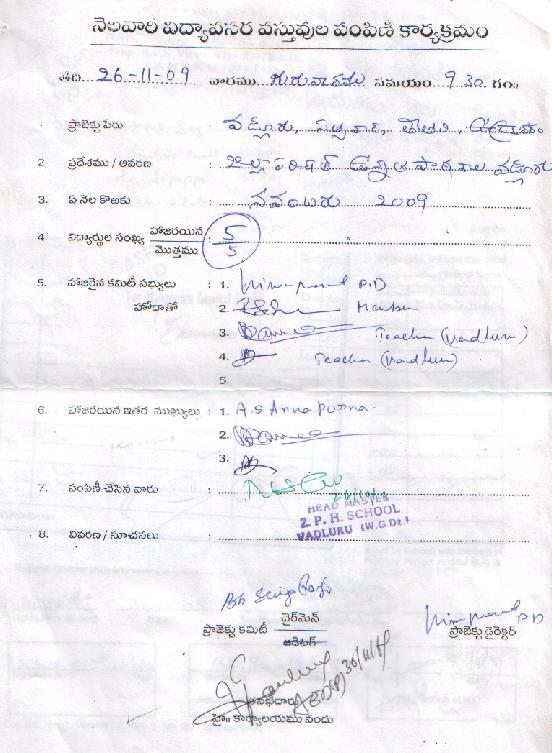 నెలవారి విద్యావసర వస్తువుల పంపిణీ కార్యక్రమం
తేది 26-11-09 వారము గురువారము సమయం 9.30 గం॥
1. ప్రాజెక్టు పేరు : వడ్లూరు,
2. ప్రదేశము / ఆవరణ : జిల్లా పరిషత్ ఉన్నత పాఠశాల వడ్లూరు
3. ఏ నెల కొఱకు : నవంబరు 2009
4. విద్యార్థుల సంఖ్య హాజరయిన / మొత్తము : 5 / 5
5. హాజరైన కమిటీ సభ్యులు : 1. P.D
హోదాతో 2.
3. Teacher (Vadluru)
4. Teacher (Vadluru)
5.
6. హాజరయిన ఇతర ముఖ్యులు : 1. A.S Anna Purna.
2.
3.
7. పంపిణీ చేసిన వారు :
HEAD MASTER
Z. P. H. SCHOOL
VADLURU (W.G.Dt.)
8. వివరణ / సూచనలు :
ప్రాజెక్టు కమిటీ చైర్‌మెన్ / ఆడిటర్
ప్రాజెక్టు డైరెక్టర్
30/11/09
హై॥ కార్యాలయము నందు